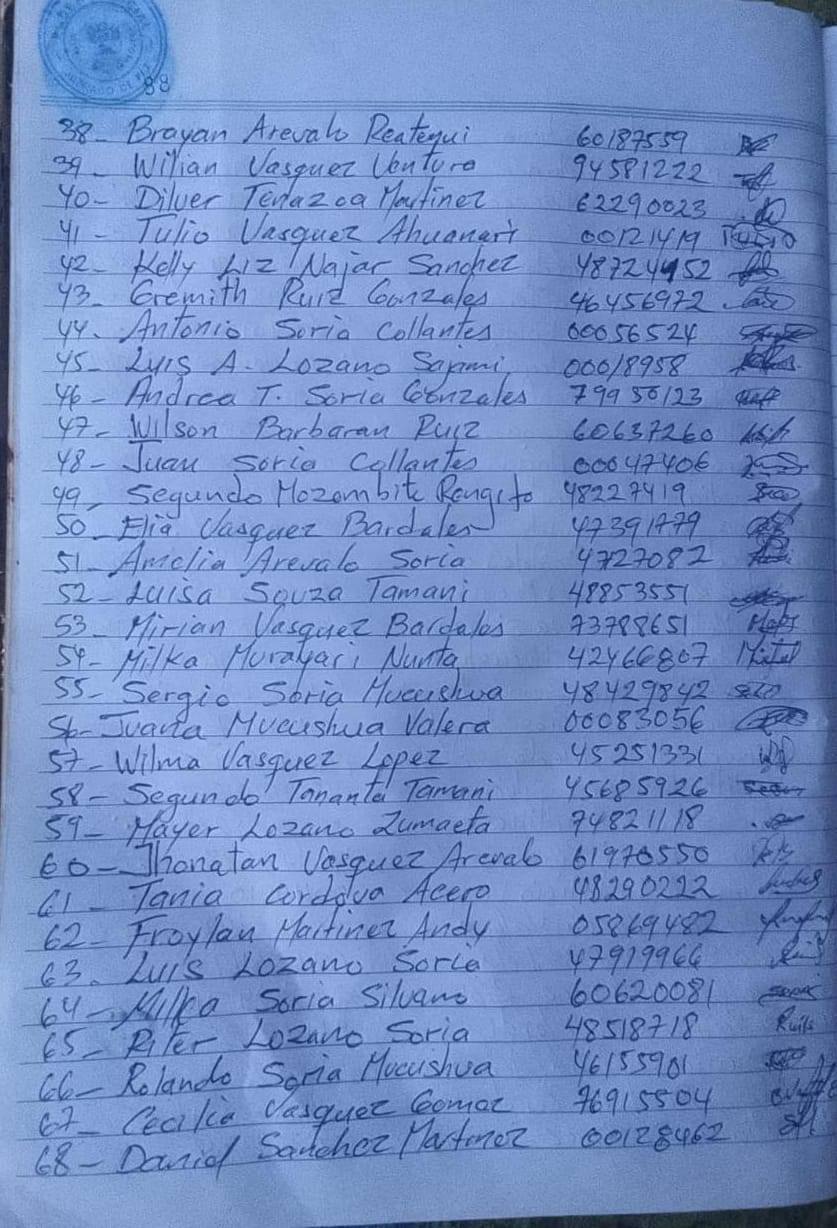 88
38- Brayan Arevalo Reategui 60187559
39- Wilian Vasquez Ventura 94581222
40- Dilver Tenazoa Martinez 62290023
41- Tulio Vasquez Ahuanari 00121419 Tulio
42- Kelly Liz Najar Sanchez 48724452
43- Gremith Ruiz Gonzales 46456972
44- Antonio Soria Collantes 00056524
45- Luis A. Lozano Sajami 00018958
46- Andrea T. Soria Gonzales 79950123
47- Wilson Barbaran Ruiz 60637260
48- Juan Soria Collantes 00047406
49- Segundo Mozombite Rengifo 48227419
50- Elia Vasquez Bardales 47391779
51- Amelia Arevalo Soria 4727082
52- Luisa Souza Tamani 48853551
53- Mirian Vasquez Bardales 73788651
54- Milka Murayari Nunta 42466807
55- Sergio Soria Mucushua 48429842
56- Juana Mucushua Valera 00083056
57- Wilma Vasquez Lopez 45251331
58- Segundo Tananta Tamani 45685926
59- Mayer Lozano Zumaeta 74821118
60- Jhonatan Vasquez Arevalo 61970550
61- Tania Cordova Acero 48290222
62- Froylan Martinez Andy 05869482
63. Luis Lozano Soria 47919966
64- Milka Soria Silvano 60620081
65- Riter Lozano Soria 48518718
66- Rolando Soria Mucushua 46155901
67- Cecilia Vasquez Gomez 76915504
68- Daniel Sanchez Martinez 00128462